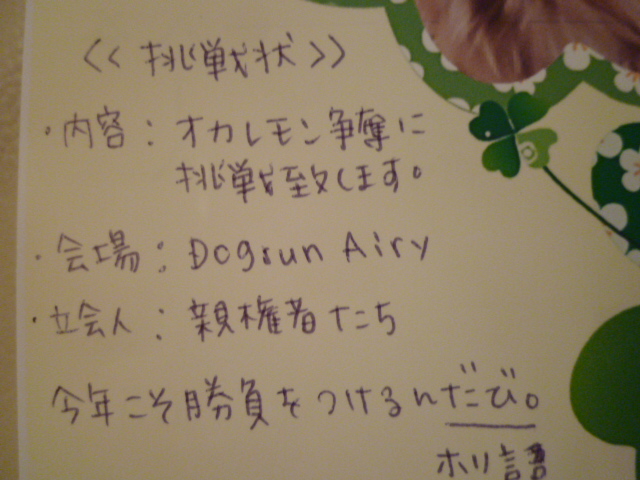 《 挑戦状 》
・内容：オカレモン争奪に
挑戦致します。
・会場：Dogrun Airy
・立会人：親権者たち
今年こそ勝負をつけるんだび。
ホリ語